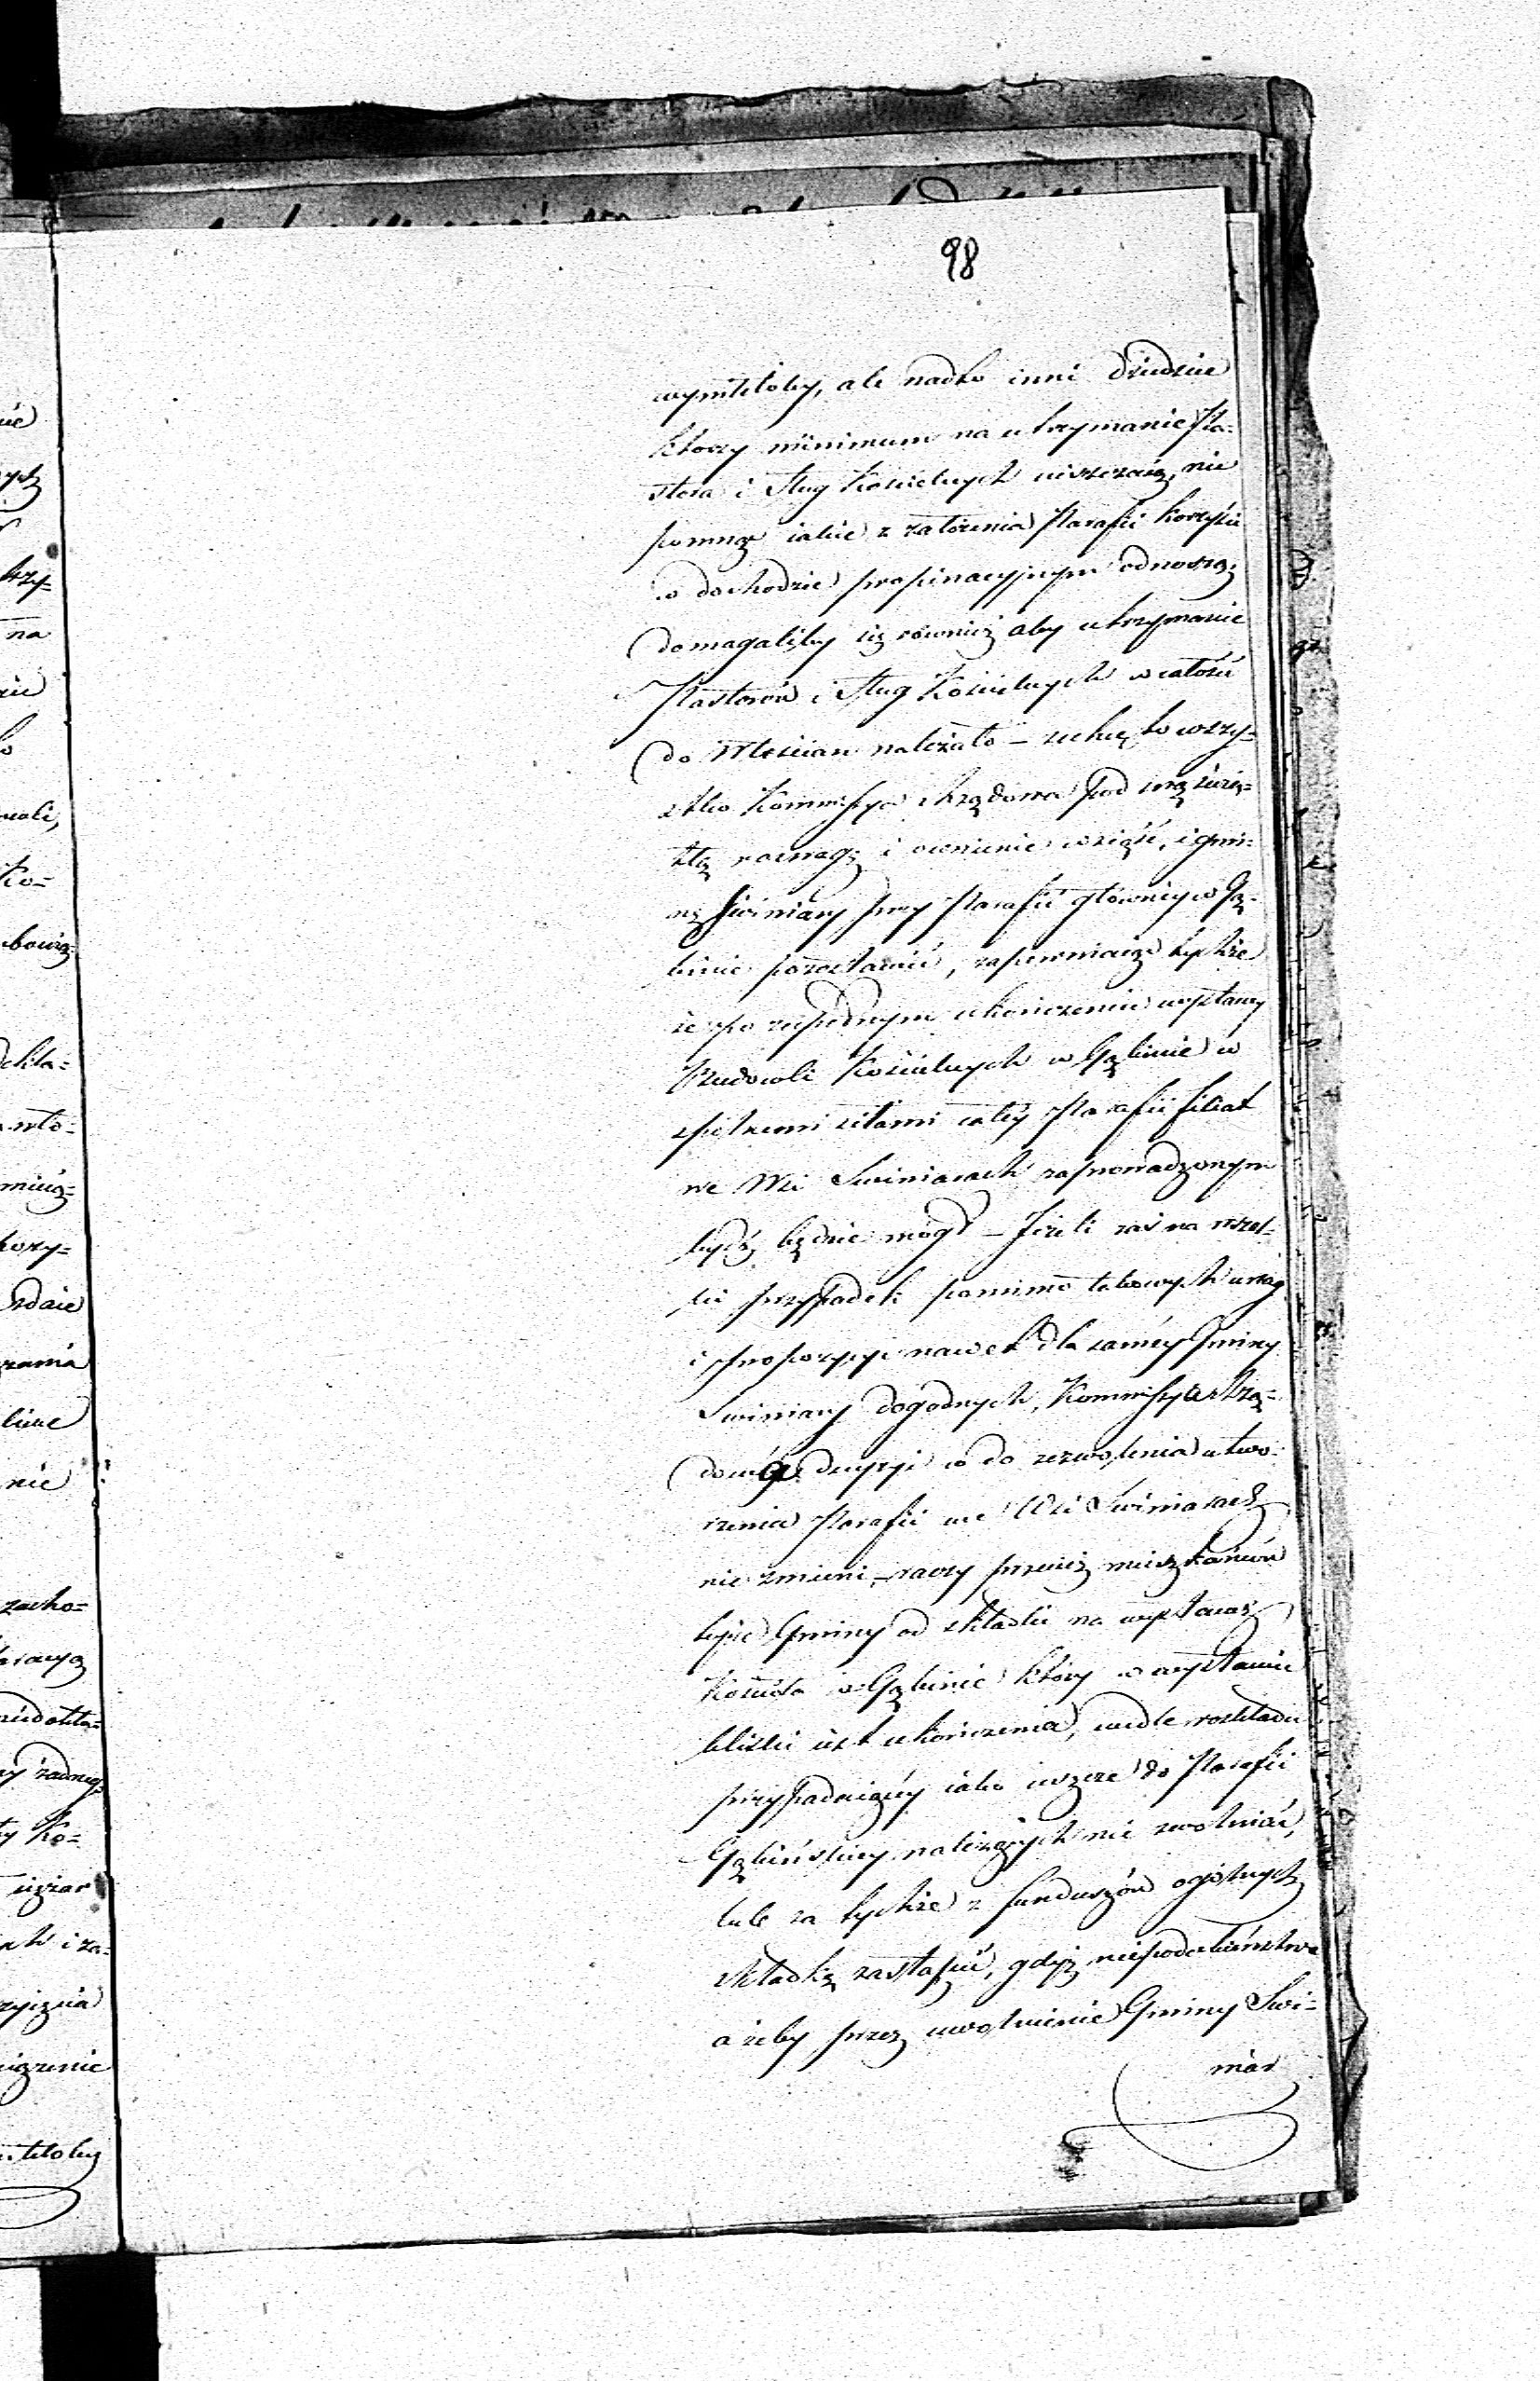 98
wynikłoby, ale nadto inni Dziedzice
którzy minimum na utrzymanie Pa-
stora i Sług Kościelnych uiszczaią, nie
pomnąc iakie z założenia Parafii korzyści
o dochodzie propinacyjnym odnoszą,
domagaliby się również aby utrzymanie
Pastorów i Sług Kościelnych w całości
do Włościan należało – zechce to wszy-
stko Kommissya Rządowa pod swą świa-
tłą rozwagę i ocenienie wziąść, i gmi-
nę Swiniary przy Parafii główney w Gą-
binie pozostawić, zapewniaiąc tychże
że po zupełnym ukończeniu wystawy
Budowli Kościelnych w Gąbinie w
spólnemi siłami całéy Parafii filiał
we Wsi Swiniarach zaprowadzonym
bydź będzie mógł – Jeżeli zaś na wszel-
ki przypadek pomimo takowych uwag
i propozycyi nawet dla saméy Gminy
Swiniary dogodnych, Kommissya Rzą-
dowa decyzyi co do zezwolenia utwo-
rzenia Parafii we Wsi Swiniarach
nie zmieni, – raczy przecież mieszkańców
tejże Gminy od składki na wystawę
Kościoła w Gąbinie który w wystawie
bliski iest ukończenia, wedle rozkładu
przypadaiącéy iako ieszcze do Parafii
Gąbińskiey należących nie zwolniać,
lub za tychże z funduszów ogólnych
składkę zastąpić, gdyż niepodobieństwo
ażeby przez uwolnienie Gminy Swi-
niar